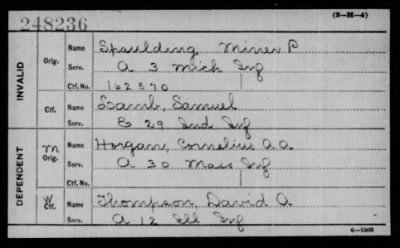 248236 (3-H-4)
INVALID Orig. Name Spaulding Miner P
Serv. A 3 Mich Inf
Ctf. No. 162570
Ctf. Name Lamb, Samuel
Serv. E 29 Ind Inf
DEPENDENT M Orig. Name Horgan, Cornelius A.A.
Serv. A 30 Mass Inf
Ctf. No.
W Ctf. Name Thompson, David A
Serv. A 12 Ill Inf